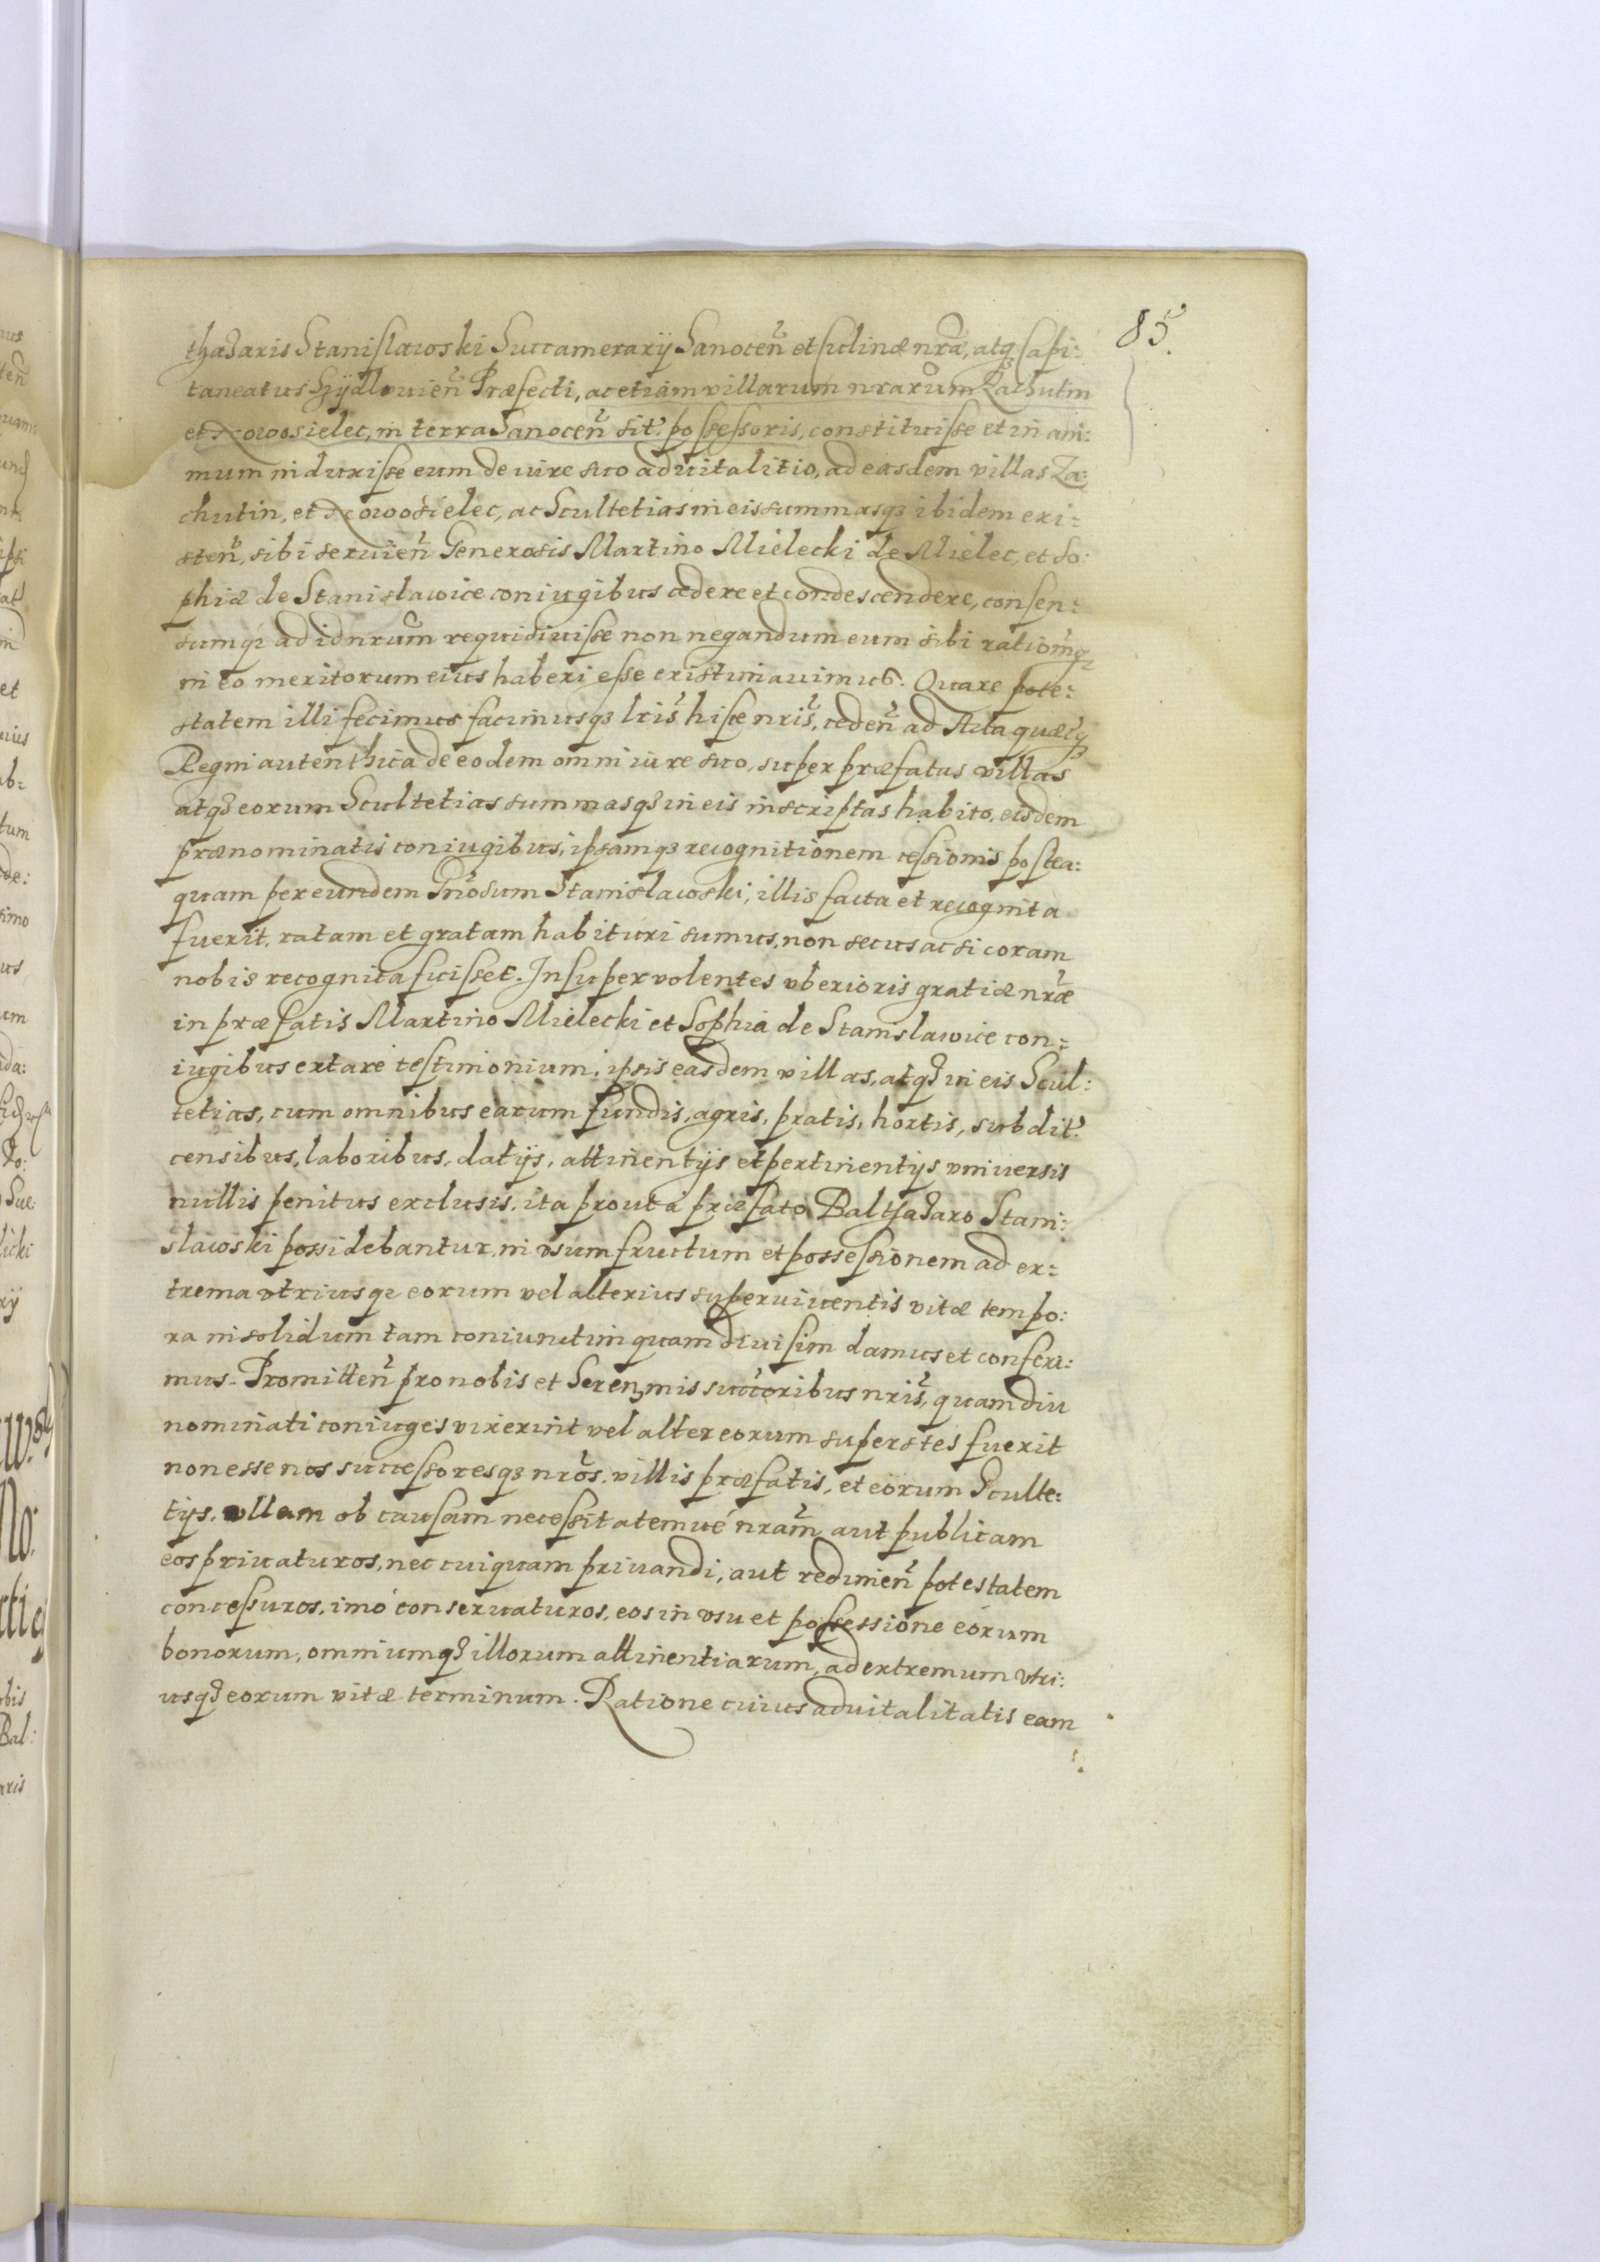 85.
thazaris Stanislawoski Succamerarij Sanocen̄ et Culinæ nr̄æ, atq₃ Capi:
taneatus Szÿdlovien̄ Præfecti, ac etiam villarum nrarum Zachutin
et Nowosielec, in terra Sanocen̄ sit. possessoris, constituisse et in ani:
mum induxisse eum de iure suo aduitalitio, ad easdem villas Za:
chutin, et Nowosielec, ac Scultetias in eis summasq₃ ibidem exi:
sten̄, sibi seruien̄ Generosis Martino Mielecki de Mielec, et So:
phiæ de Stanislawice coniugibus cedere et condescendere, consen:
sumq₃ ad id nrum requisiuisse non negandum eum sibi rationēq₃
in eo meritorum eius haberi esse existimauimus. Quare pote:
statem illi fecimus facimusq₃ lris hisce nris, ceden̄ ad Acta quæcq₃
Regni autenthica de eodem omni iure suo, super præfatas villas
atq₃ eorum Scultetias summasq₃ in eis inscriptas habito, eisdem
prænominatis coniugibus, ipsamq₃ recognitionem cessionis postea:
quam per eundem Gnosum Stanislawoski, illis facta et recognita
fuerit, ratam et gratam habituri sumus, non secus ac si coram
nobis recognita fuisset. Insuper volentes vberioris gratiæ nræ
in præfatis Martino Mielecki et Sophia de Stanislawice con:
iugibus extare testimonium, ipsis easdem villas, atq₃ in eis Scul:
tetias, cum omnibus earum fundis, agris, pratis, hortis, subdit.
censibus, laboribus, datijs, attinentijs et pertinentijs vniuersis
nullis penitus exclusis, ita prout à præfato Balthazaro Stani:
slawoski possidebantur, in vsumfructum et possessionem ad ex:
trema vtriusq₃ eorum vel alterius superuiuentis vitæ tempo:
ra in solidum tam coniunctim quam diuisim damus et conferi:
mus. Promitten̄ pro nobis et Serenmis succoribus nris, quamdiu
nominati coniuges vixerint vel alter eorum superstes fuerit
non esse nos successoresq₃ nros, villis præfatis, et eorum Sculte:
tijs, vllam ob causam necessitatemue nram aut publicam
eos priuaturos, nec cuiquam priuandi, aut redimen̄ potestatem
concessuros, imò conseruaturos, eos in vsu et possessione eorum
bonorum, omniumq₃ illorum attinentiarum, ad extremum vtri:
usq₃ eorum vitæ terminum. Ratione cuius aduitalitatis eam